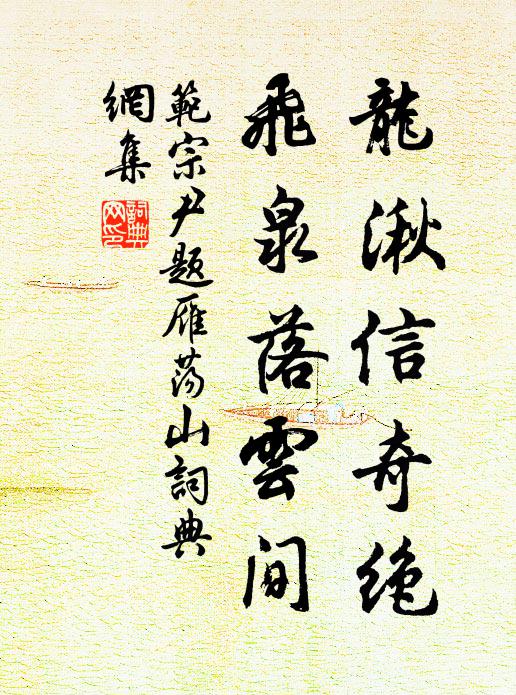 龍湫信奇絶
飛泉落雲間
範宗尹題雁蕩山詞典
網集
詞典
网印